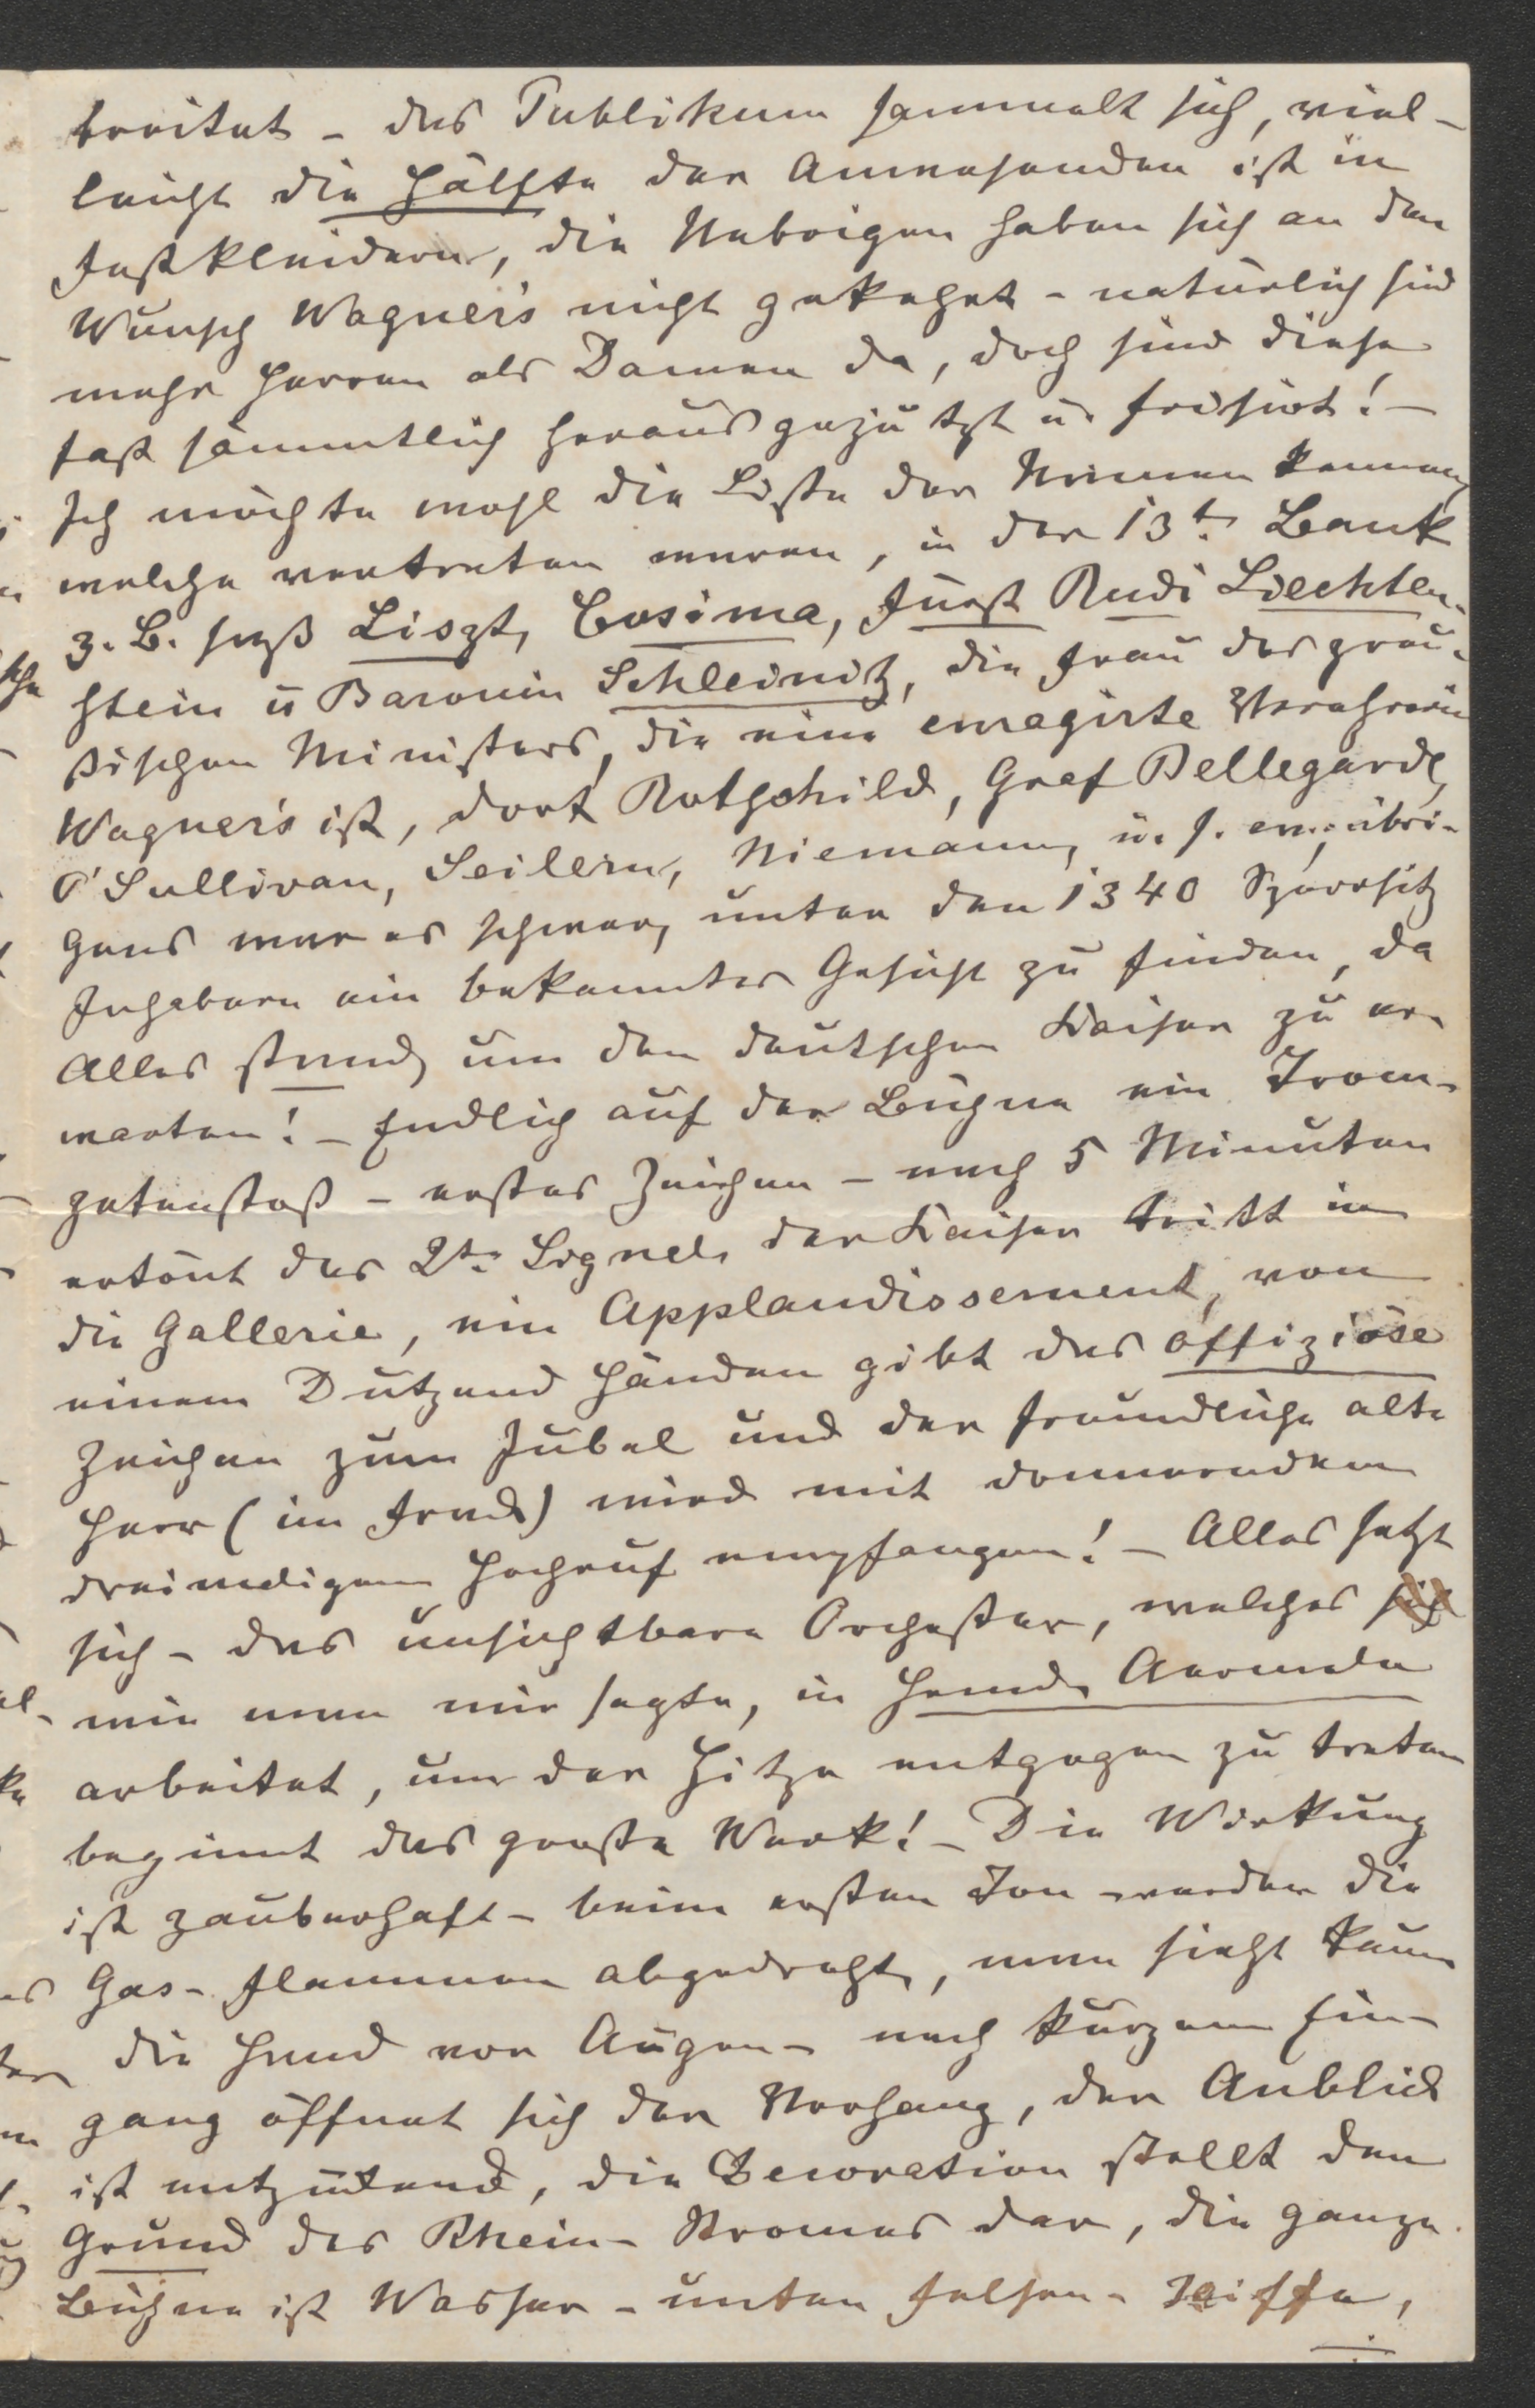 breitet – das Publikum sammelt sich, viel-
leicht die Hälfte der Anwesenden ist in
Festkleidern, die Uebrigen haben sich an den
Wunsch Wagner's nicht gekehrt – natürlich sind
mehr Herren als Damen da, doch sind diese
fast sämmtlich herausgeputzt u. frisirt! –
Ich möchte wohl die Liste der Namen kennen,
welche vertreten waren, in der 13t. Bank
z. B. saß Liszt, Cosima, Fürst Rudi Liechten-
stein u Baronin Schleinitz, die Frau des preu-
ßischen Ministers, die eine enragirte Verehrerin
Wagner's ist, dort Rothschild, Graf Bellegarde,
O'Sullivan, Seilern, Niemann, u. s. w., übri-
gens war es schwer, unter den 1340 Sperrsitz
Inhabern ein bekanntes Gesicht zu finden, da
Alles stand, um den deutschen Kaiser zu er-
warten! – Endlich auf der Bühne ein Trom-
petenstoß – erstes Zeichen – nach 5 Minuten
ertönt das 2te Signal, der Kaiser tritt in
die Gallerie, ein Applaudissement, von
einem Dutzend Händen gibt das offiziöse
Zeichen zum Jubel und der freundliche alte
Herr (im Frack) wird mit donnerndem
dreimaligem Hochruf empfangen! – Alles setzt
sich – das unsichtbare Orchester, welches sich
wie man mir sagte, in Hemd-Aermeln
arbeitet, um der Hitze entgegen zu treten
beginnt das große Werk! – Die Wirkung
ist zauberhaft – beim ersten Ton werden die
Gas-Flammen abgedreht, man sieht kaum
die Hand vor Augen – nach kurzem Ein-
gang öffnet sich der Vorhang, der Anblick
ist entzückend, die Decoration stellt den
Grund des Rhein-Stromes dar, die ganze
Bühne ist Wasser – unten Felsen-Riffe,